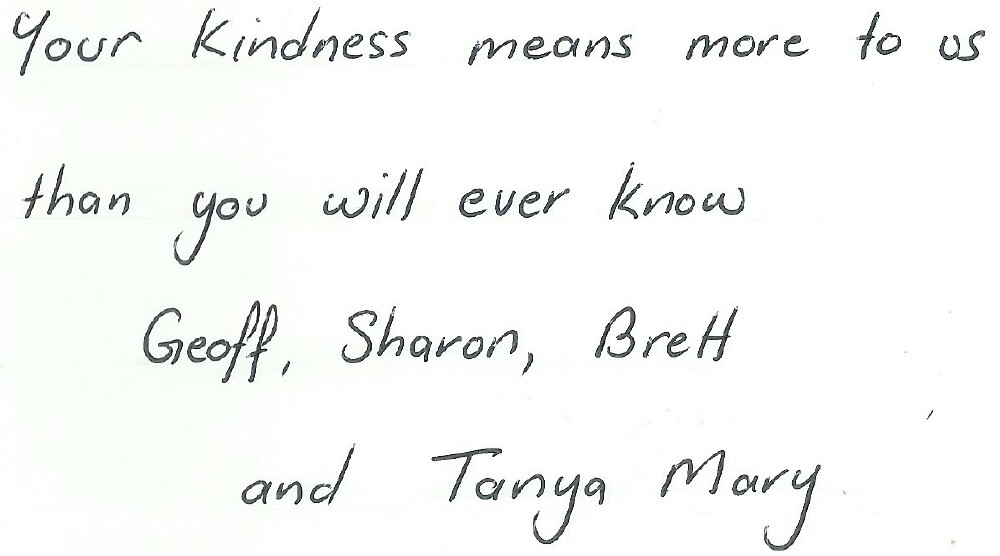 Your kindness means more to us
than you will ever know
Geoff, Sharon, Brett
and Tanya Mary